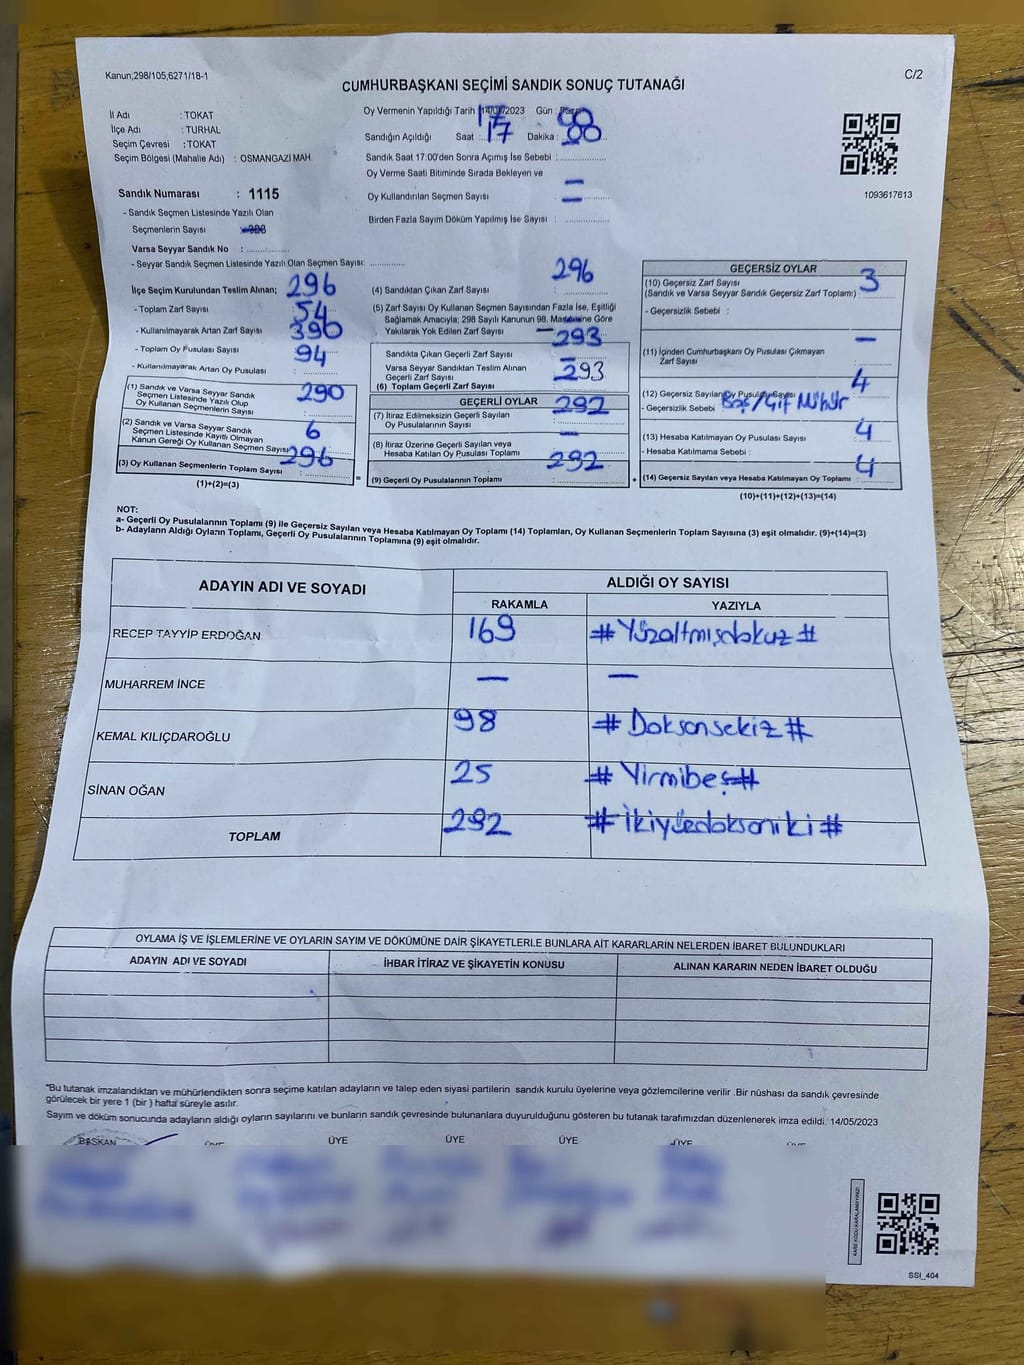 Kanun;298/105,6271/18-1
C/2
CUMHURBAŞKANI SEÇİMİ SANDIK SONUÇ TUTANAĞI
İl Adı : TOKAT
İlçe Adı : TURHAL
Seçim Çevresi : TOKAT
Seçim Bölgesi (Mahalle Adı) : OSMANGAZİ MAH.
Sandık Numarası : 1115
- Sandık Seçmen Listesinde Yazılı Olan
Seçmenlerin Sayısı
Varsa Seyyar Sandık No :
- Seyyar Sandık Seçmen Listesinde Yazılı Olan Seçmen Sayısı:
Oy Vermenin Yapıldığı Tarih 2023 Gün :
Sandığın Açıldığı Saat : 17 Dakika : 00
Sandık Saat 17:00'den Sonra Açımış İse Sebebi :
Oy Verme Saati Bitiminde Sırada Bekleyen ve
Oy Kullandırılan Seçmen Sayısı —
Birden Fazla Sayım Döküm Yapılmış İse Sayısı :
1093617613
İlçe Seçim Kurulundan Teslim Alınan; 296
- Toplam Zarf Sayısı 54
- Kullanılmayarak Artan Zarf Sayısı 390
- Toplam Oy Pusulası Sayısı 94
- Kullanılmayarak Artan Oy Pusulası
(1) Sandık ve Varsa Seyyar Sandık
Seçmen Listesinde Yazılı Olup
Oy Kullanan Seçmenlerin Sayısı : 290
(2) Sandık ve Varsa Seyyar Sandık
Seçmen Listesinde Kayıtlı Olmayan
Kanun Gereği Oy Kullanan Seçmen Sayısı : 6
(3) Oy Kullanan Seçmenlerin Toplam Sayısı : 296
(1)+(2)=(3)
=
(4) Sandıktan Çıkan Zarf Sayısı : 296
(5) Zarf Sayısı Oy Kullanan Seçmen Sayısından Fazla İse, Eşitliği
Sağlamak Amacıyla; 298 Sayılı Kanunun 98. Maddesine Göre
Yakılarak Yok Edilen Zarf Sayısı —
Sandıkta Çıkan Geçerli Zarf Sayısı 293
Varsa Seyyar Sandıktan Teslim Alınan
Geçerli Zarf Sayısı —
(6) Toplam Geçerli Zarf Sayısı : 293
GEÇERLİ OYLAR
(7) İtiraz Edilmeksizin Geçerli Sayılan
Oy Pusulası Toplamı : 292
(8) İtiraz Üzerine Geçerli Sayılan veya
Hesaba Katılan Oy Pusulası Toplamı : —
(9) Geçerli Oy Pusulalarının Toplamı : 292
+
GEÇERSİZ OYLAR
(10) Geçersiz Zarf Sayısı
(Sandık ve Varsa Seyyar Sandık Geçersiz Zarf Toplamı) : 3
- Geçersizlik Sebebi :
(11) İçinden Cumhurbaşkanı Oy Pusulası Çıkmayan
Zarf Sayısı : —
(12) Geçersiz Sayılan Oy Pusulası Sayısı : 4
- Geçersizlik Sebebi Boş/Çift Mühür
(13) Hesaba Katılmayan Oy Pusulası Sayısı : 4
- Hesaba Katılmama Sebebi :
(14) Geçersiz Sayılan veya Hesaba Katılmayan Oy Toplamı : 4
(10)+(11)+(12)+(13)=(14)
NOT:
a- Geçerli Oy Pusulalarının Toplamı (9) ile Geçersiz Sayılan veya Hesaba Katılmayan Oy Toplamı (14) Toplamları, Oy Kullanan Seçmenlerin Toplam Sayısına (3) eşit olmalıdır. (9)+(14)=(3)
b- Adayların Aldığı Oyların Toplamı, Geçerli Oy Pusulalarının Toplamına (9) eşit olmalıdır.
ADAYIN ADI VE SOYADI ALDIĞI OY SAYISI
RAKAMLA YAZIYLA
RECEP TAYYİP ERDOĞAN 169 # Yüzaltmışdokuz #
MUHARREM İNCE — —
KEMAL KILIÇDAROĞLU 98 # Doksansekiz #
SİNAN OĞAN 25 # Yirmibeş #
TOPLAM 292 # İkiyüzdoksaniki #
OYLAMA İŞ VE İŞLEMLERİNE VE OYLARIN SAYIM VE DÖKÜMÜNE DAİR ŞİKAYETLERLE BUNLARA AİT KARARLARIN NELERDEN İBARET BULUNDUKLARI
ADAYIN ADI VE SOYADI İHBAR İTİRAZ VE ŞİKAYETİN KONUSU ALINAN KARARIN NEDEN İBARET OLDUĞU
"Bu tutanak imzalandıktan ve mühürlendikten sonra seçime katılan adayların ve talep eden siyasi partilerin sandık kurulu üyelerine veya gözlemcilerine verilir. Bir nüshası da sandık çevresinde
görülecek bir yere 1 (bir) hafta süreyle asılır.
Sayım ve döküm sonucunda adayların aldığı oyların sayılarını ve bunların sandık çevresinde bulunanlara duyurulduğunu gösteren bu tutanak tarafımızdan düzenlenerek imza edildi. 14/05/2023
BAŞKAN ÜYE ÜYE ÜYE ÜYE ÜYE
SSI_404